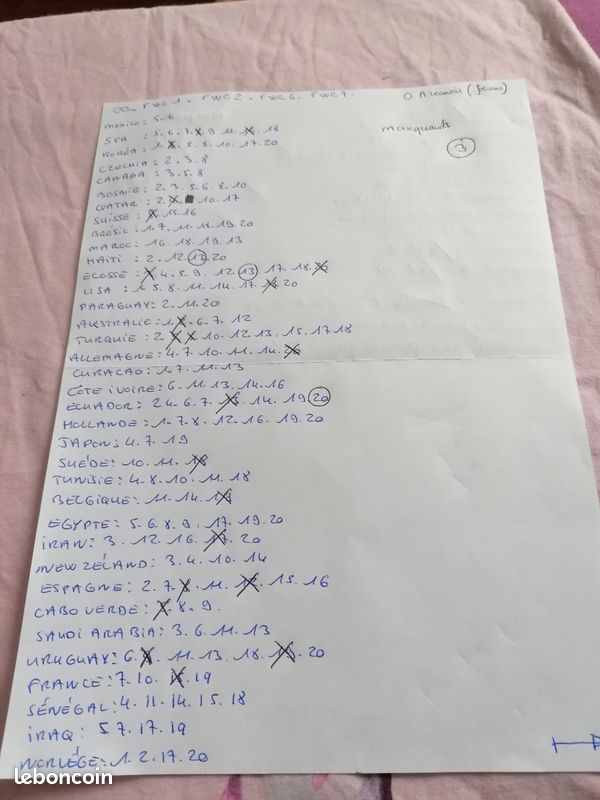 00 - FWC1 - FWC2 - FWC6 - FWC7.
O A recevoir
manquants
3
MEXICO: 5.6
SFA : 5.6.7. 9 11. 18
KORÉA: 1. 5.8.10.17.20
CZECHIA: 2.3.8
CANADA: 3.5.8
BOSNIE: 2.3.5.6.8.10
QATAR: 2. 10.17
SUISSE: 15.16
BRÉSIL: 1.7.11.18.19.20
MAROC: 16.18.19.13
HAÏTI : 2.12.13.20
ECOSSE: 4.5.9.12.13 17.18.
USA : 1.5.8.11.14.17. 20
PARAGUAY: 2.11.20
AUSTRALIE: 1. 6.7.12
TURQUIE: 2. 10.12.13.15.17.18
ALLEMAGNE: 4.7.10.11.14.
CURACAO: 1.7.11.13
CÔTE IVOIRE: 6.11.13.14.16
ECUADOR: 2 4.6.7. 14.19 20
HOLLANDE: 1.7.8.12.16.19.20
JAPON: 4.7.19
SUÉDE: 10.11.
TUNISIE: 4.8.10.11.18
BELGIQUE: 11.14.
EGYPTE: 5.6.8.9.17.19.20
IRAN: 3.12.16. 20
NEW ZÉLAND: 3.4.10.14
ESPAGNE: 2.7. 11. 15.16
CABO VERDE: 8.9.
SAUDI ARABIA: 3.6.11.13
URUGUAY: 6. 11.13.18. 20
FRANCE: 7.10. 19
SÉNÉGAL: 4.11.14.15.18
IRAQ: 5 7.17.19
NORLÉGE: 1.2.17.20
leboncoin